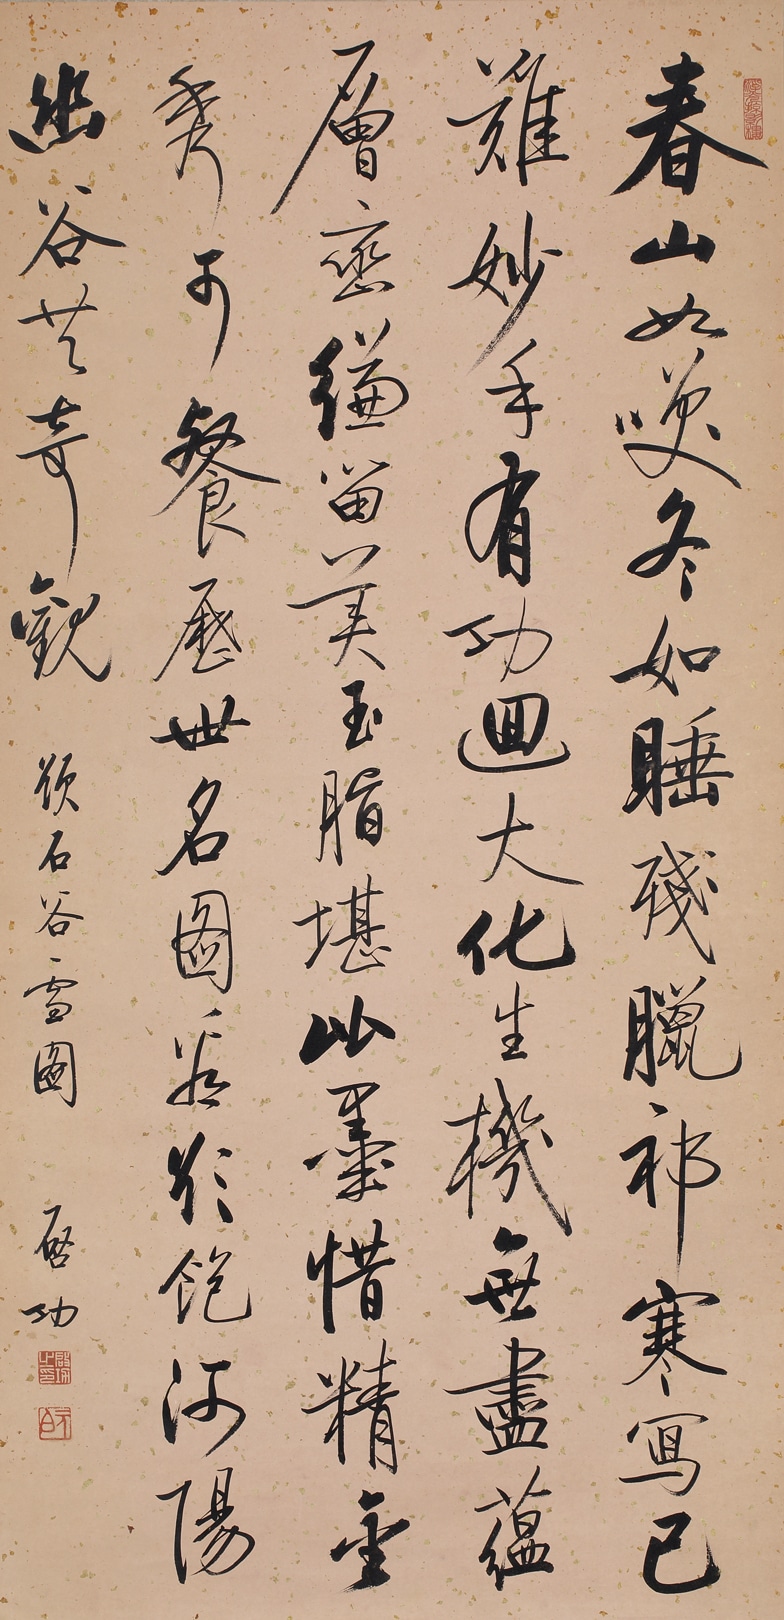 春山如笑冬如睡殘臘祁寒寫已
難妙手有功迴大化生機無盡蘊
層巒縑留美玉脂堪比墨惜精金
秀可餐歷世名圖看欲飽河陽
幽谷共奇觀 題石谷雪圖 啓功
啟功之印
元白